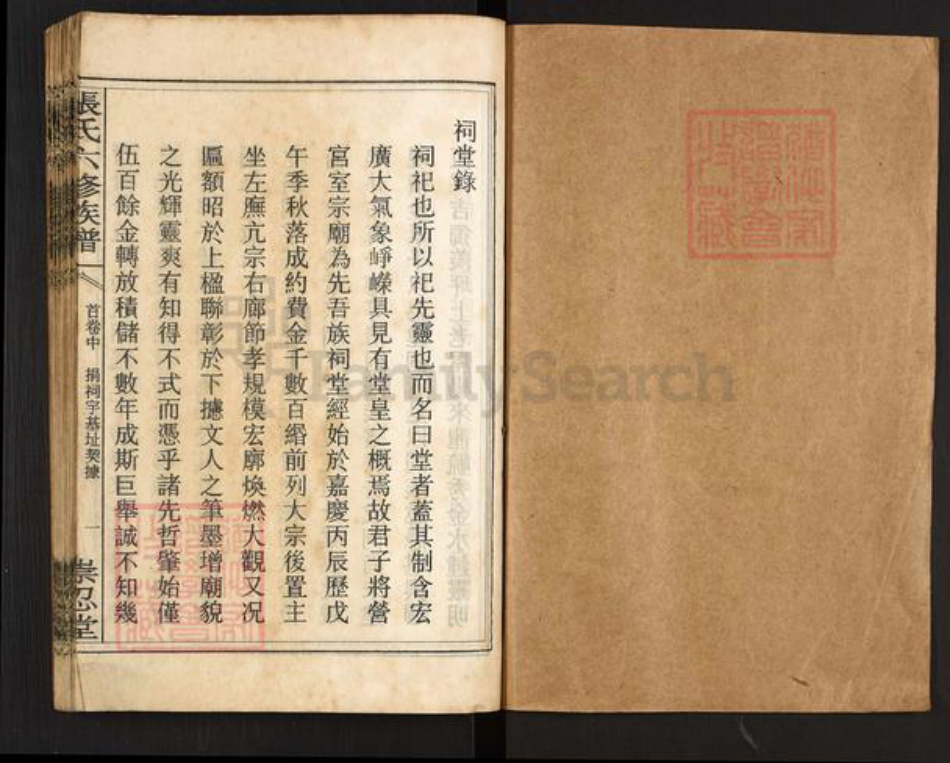 祠堂錄
祠祀也所以祀先靈也而名曰堂者蓋其制含宏
廣大氣象崢嶸具見有堂皇之概焉故君子將營
宮室宗廟為先吾族祠堂經始於嘉慶丙辰歷戊
午季秋落成約費金千數百緡前列大宗後置主
坐左廡亢宗右廊節孝規模宏廓煥燃大觀又况
匾額昭於上楹聯彰於下摅文人之筆墨增廟貌
之光輝靈爽有知得不式而憑乎諸先哲肇始僅
伍百餘金轉放積儲不數年成斯巨舉誠不知幾
張氏六修族譜
首卷中 捐祠宇基址契據 一
崇忍堂
FamilySearch